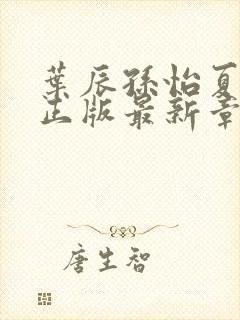 葉辰孫怡夏
正版最新章
唐生智